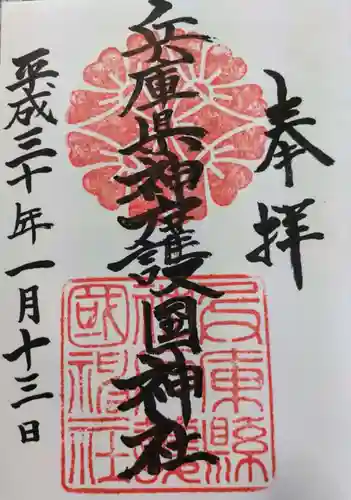 奉拝
兵庫縣神戸護國神社
兵庫縣神戸護國神社
平成三十年一月十三日